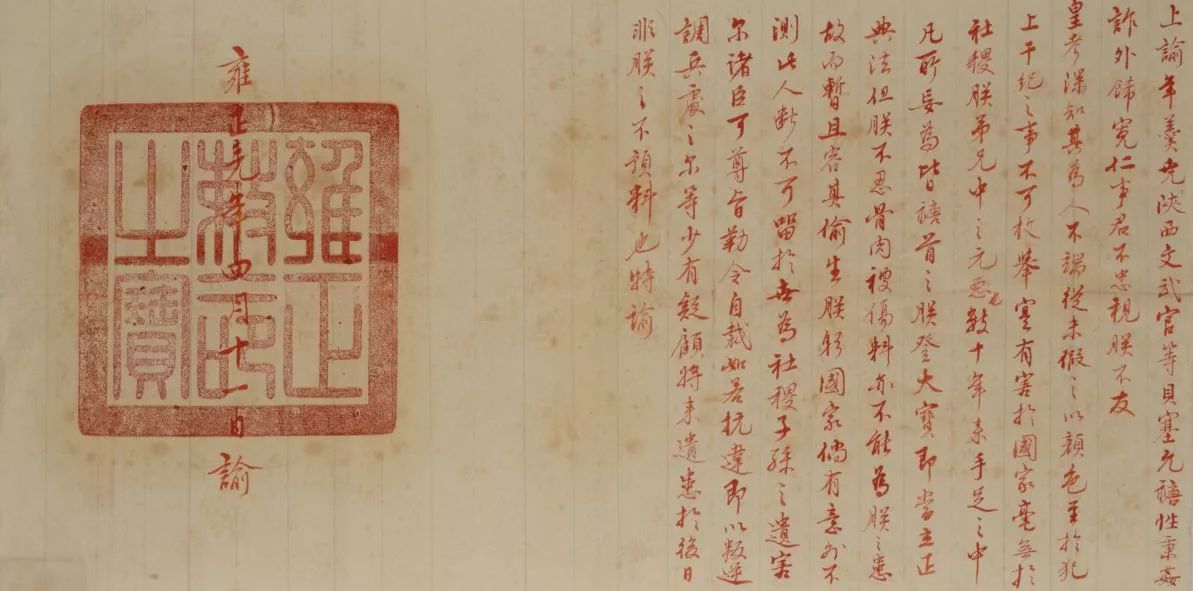 上諭年羹堯陝西文武官等貝塞允禟性秉姦
詐外飾寬仁事君不忠視朕不友
皇考深知其為人不端從未假之以顏色至於犯
上干紀之事不可枚舉寔有害於國家毫無於
社稷朕弟兄中之元惡也數十年來手足之中
凡所妄為皆禟首之朕登大寶即當立正
典法但朕不忍骨肉被傷料亦不能為朕之患
故而暫且容其偷生朕躬國家倘有意外不
測此人斷不可留於世為社稷子孫之遺害
尔諸臣可尊旨勒令自裁如若抗違即以叛逆
調兵處之尔等少有疑顧將來遺患於後日
非朕之不預料也特諭
雍正元年四月十一日諭
雍正
敕命
之寶